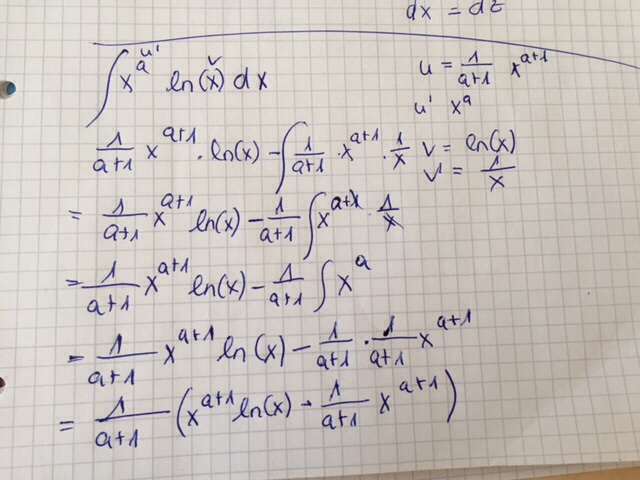 dx = dz
∫ x^a ln(x) dx
u'
v
u = 1/(a+1) x^(a+1)
u' x^a
1/(a+1) x^(a+1) · ln(x) - ∫ 1/(a+1) · x^(a+1) · 1/x
v = ln(x)
v' = 1/x
= 1/(a+1) x^(a+1) ln(x) - 1/(a+1) ∫ x^(a+1) · 1/x
= 1/(a+1) x^(a+1) ln(x) - 1/(a+1) ∫ x^a
= 1/(a+1) x^(a+1) ln(x) - 1/(a+1) · 1/(a+1) x^(a+1)
= 1/(a+1) (x^(a+1) ln(x) - 1/(a+1) x^(a+1))